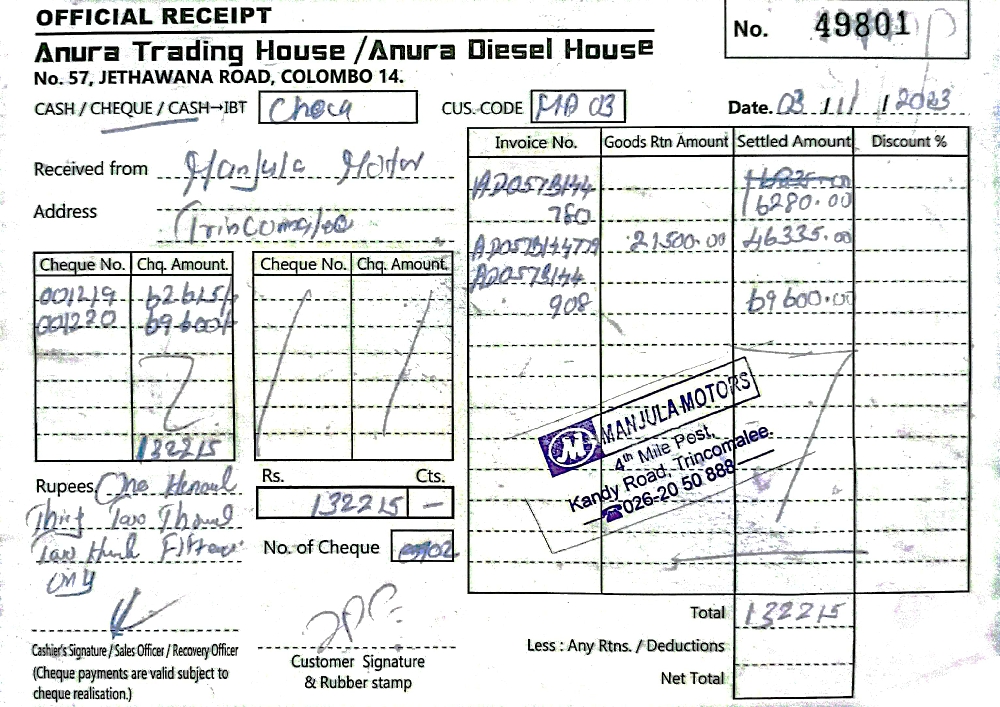 OFFICIAL RECEIPT
Anura Trading House /Anura Diesel House
No. 57, JETHAWANA ROAD, COLOMBO 14.
No. 49801
CASH / CHEQUE / CASH→IBT
CUS. CODE MA 03
Date. 03 / 11 / 2023
Received from Manjula Motor
Address Trincomalee
Cheque No. Chq. Amount.
001219 62615/-
001220 69600/-
132215
Cheque No. Chq. Amount.
Rupees One
Thirty Two
Two
only
Rs. Cts.
132215 —
No. of Cheque 02
Invoice No. Goods Rtn Amount Settled Amount Discount %
AD057B144
780 16280.00
21500.00 46335.00
AD057B144
908 69600.00
MANJULA MOTORS
4th Mile Post,
Kandy Road, Trincomalee.
☎026-20 50 888
Total 132215
Less : Any Rtns. / Deductions
Net Total
Cashier's Signature / Sales Officer / Recovery Officer
(Cheque payments are valid subject to
cheque realisation.)
Customer Signature
& Rubber stamp